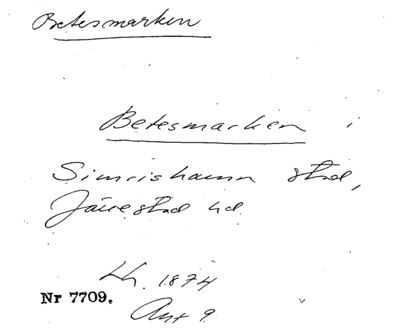 Betesmarken
Betesmarken i
Simrishamn stad,
Järrestad hd
Lh. 1874
Nr 7709.
Ant 9.